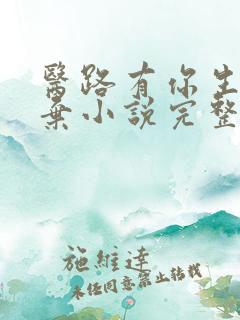 醫路有你生
棄小說完整
施維達
未經同意禁止轉載